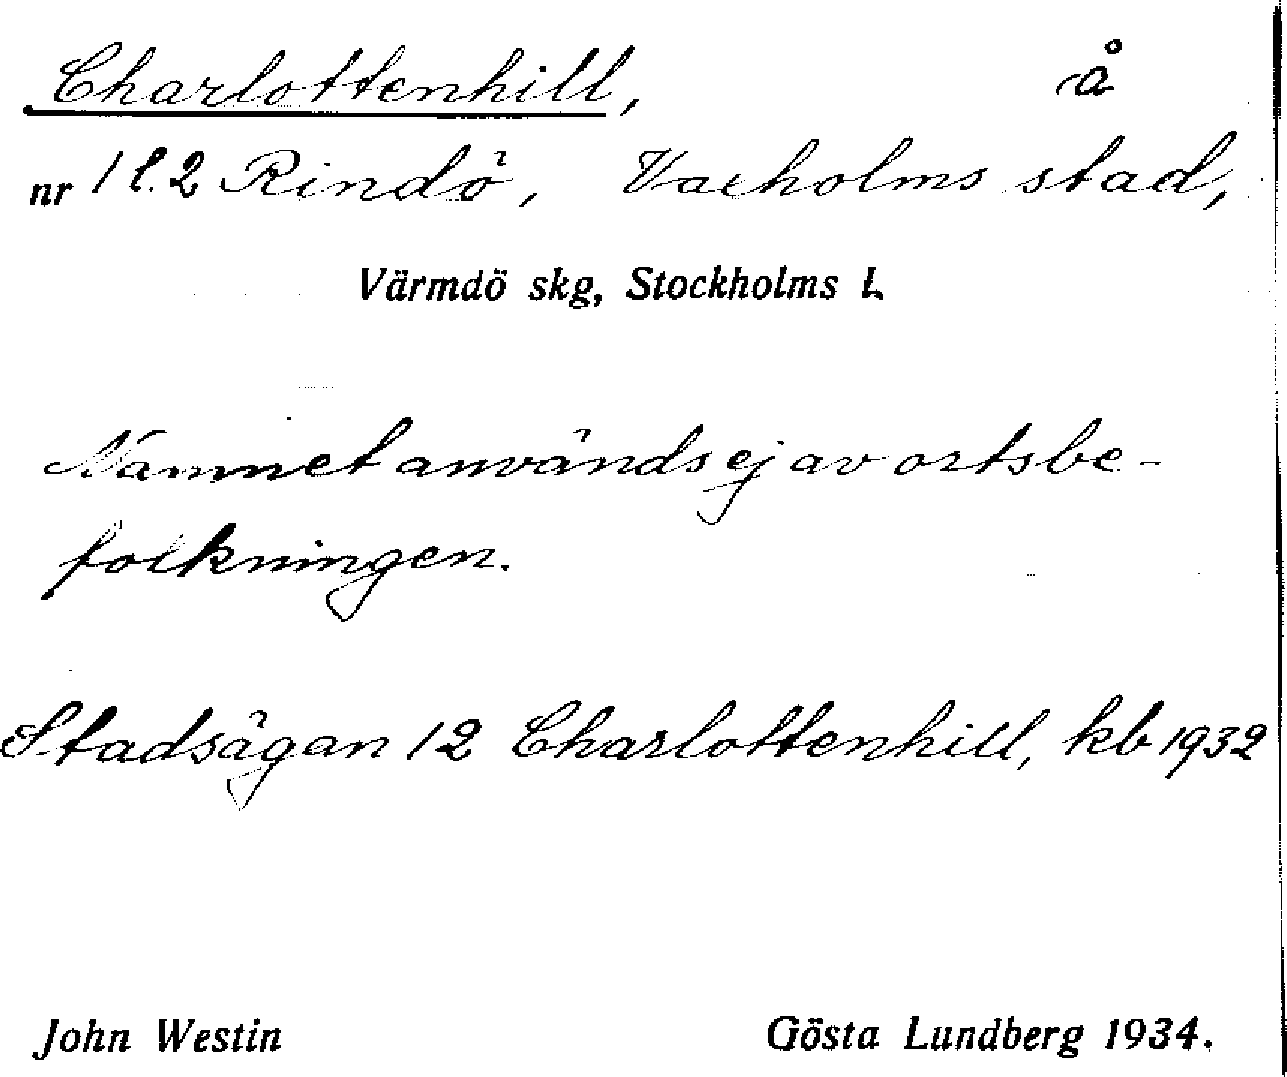 Charlottenhill, å
nr 1 l. 2 Rindö, Vaxholms stad,
Värmdö skg, Stockholms l.
Namnet används ej av ortsbe-
folkningen.
Stadsägan 12 Charlottenhill, kb 1932
John Westin Gösta Lundberg 1934.